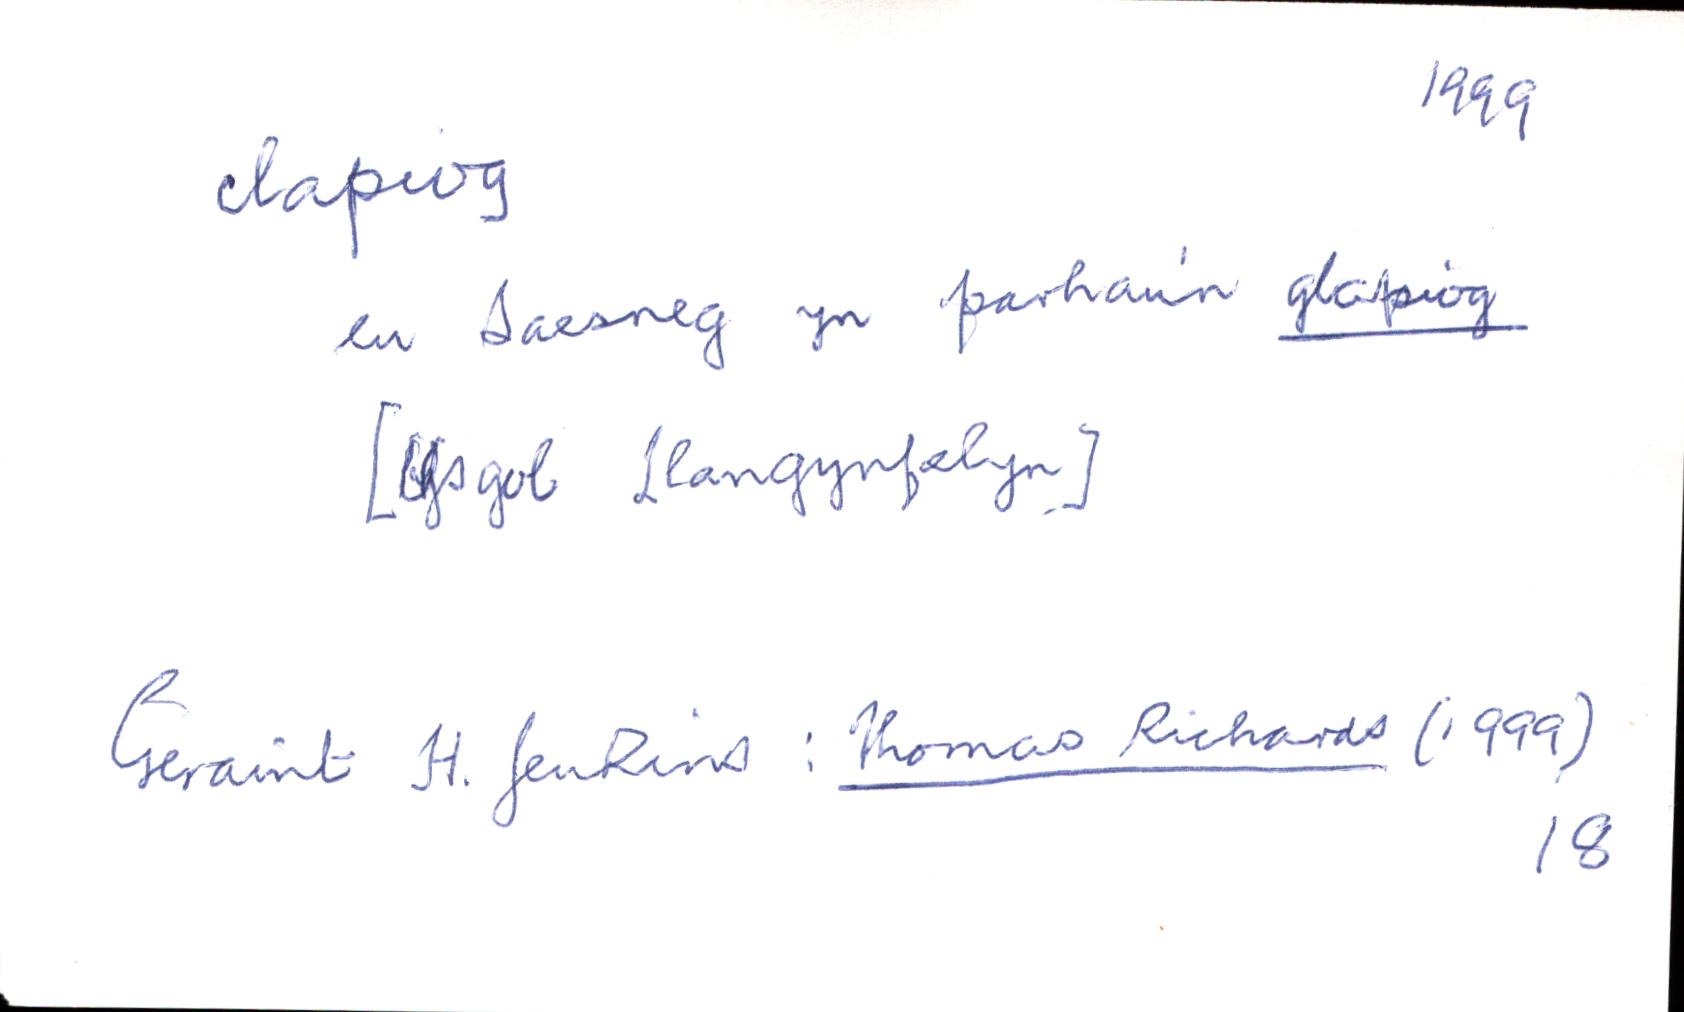 1999
clapiog
eu Saesneg yn parhau'n glapiog
[Ysgol Llangynfelyn]
Geraint H. Jenkins : Thomas Richards (1999)
18